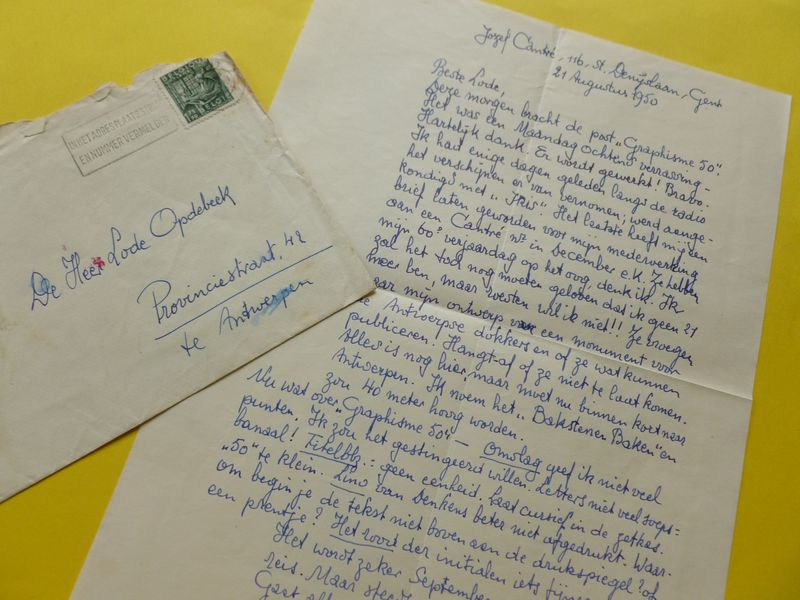 BELGIQUE
BELGIE
IN UW ADRES PLAATS STRAAT
EN NUMMER VERMELDEN
De Heer Lode Opdebeek
Provinciestraat, 42
te Antwerpen
Jozef Cantré, 116, St. Denijslaan, Gent
21 Augustus 1950
Beste Lode,
Deze morgen bracht de post „Graphisme 50".
Het was een Maandag ochtend verrassing -
Hartelijk dank. Er wordt gewerkt! Bravo.
Ik had enige dagen geleden langs de radio
het verschijnen er van vernomen; werd aange-
kondigd met „Iris". Het laatste heeft mij een
brief laten geworden voor mijn medewerking
aan een Cantré nr in December e.k. Ze hebben
mijn 60e verjaardag op het oog, denk ik. Ik
zal het tod nog moeten geloven dat ik geen 21
meer ben, maar roesten wil ik niet!! Ze vroegen
naar mijn ontwerp van een monument voor
de Antwerpse dokkers en of ze wat kunnen
publiceren. Hangt-af of ze niet te laat komen.
Alles is nog hier, maar moet nu binnen kort naar
Antwerpen. Ik noem het „Bakstenen Baken" en
zou 40 meter hoog worden.
Nu wat over „Graphisme 50" — Omslag geef ik niet veel
punten. Ik zou het gestingeerd willen. Letters niet veel
banaal! Titelblz.: geen eenheid. Laat cursief in de zetkas.
„50" te klein. Lino van Denkens beter niet afgedrukt. Waar-
om begin je de tekst niet boven aan de drukspiegel? of
een prentje? Het rood der initialen iets
Het wordt zeker September
reis. Maar
Gaat